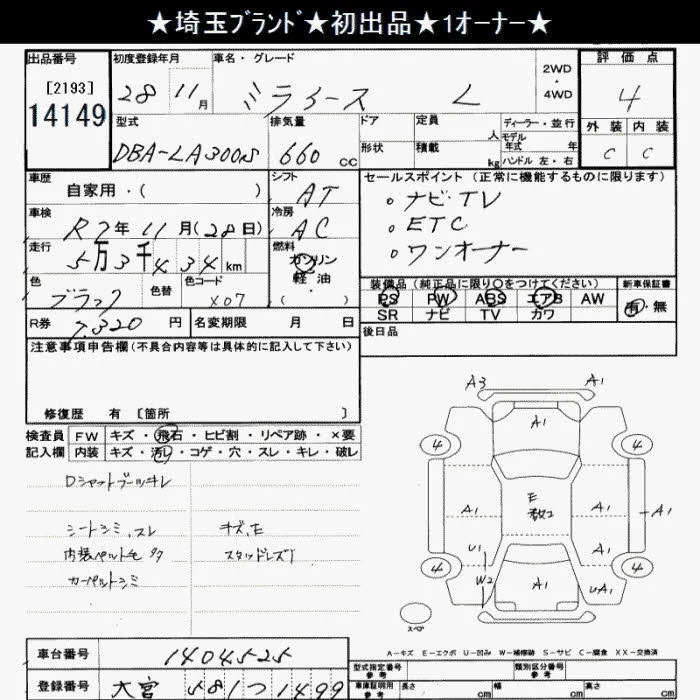 ★埼玉ﾌﾞﾗﾝﾄﾞ★初出品★1オーナー★
出品番号 初度登録年月 車名・グレード 2WD・4WD 評価点
[2193] 28 11月 ミライース L 4
14149 型式 排気量 ドア 定員 人 ディーラー・並行 外装 内装
モデル年式 年
DBA-LA300S 660cc 形状 積載 kg ハンドル 左・右 C C
車歴 シフト セールスポイント (正常に機能するものに限ります)
自家用・( ) AT ○ ナビ・TV
車検 冷房 ○ ETC
R7年11月(28日) AC ○ ワンオーナー
走行 燃料
5万3千434km ガソリン
軽油・( )
色 色替 色コード 装備品 (純正品に限り○をつけてください) 新車保証書
ブラック X07 PS PW ABS エアB AW 有・無
SR ナビ TV カワ
R券 7320円 名変期限 月 日 後日品
注意事項申告欄(不具合内容等は具体的に記入して下さい)
修復歴 有 [箇所 ]
検査員 FW キズ・飛石・ヒビ割・リペア跡・×要
記入欄 内装 キズ・汚レ・コゲ・穴・スレ・キレ・破レ
Dシャフトブーツキレ
シートシミ、スレ キズ、E
スタッドレス
カーペットシミ
A3 A1
A1
4 4
E
A1 A1 A1
U1 A1
4 4
W2 A1 UA1
スペア
A-キズ E-エクボ U-凹み W-補修跡 S-サビ C-腐食 XX-交換済
車台番号 1404525 型式指定番号 参考 類別区分番号 参考
登録番号 大宮 581 つ 1499 車庫証明用 参考 長さ cm 幅 cm 高さ cm